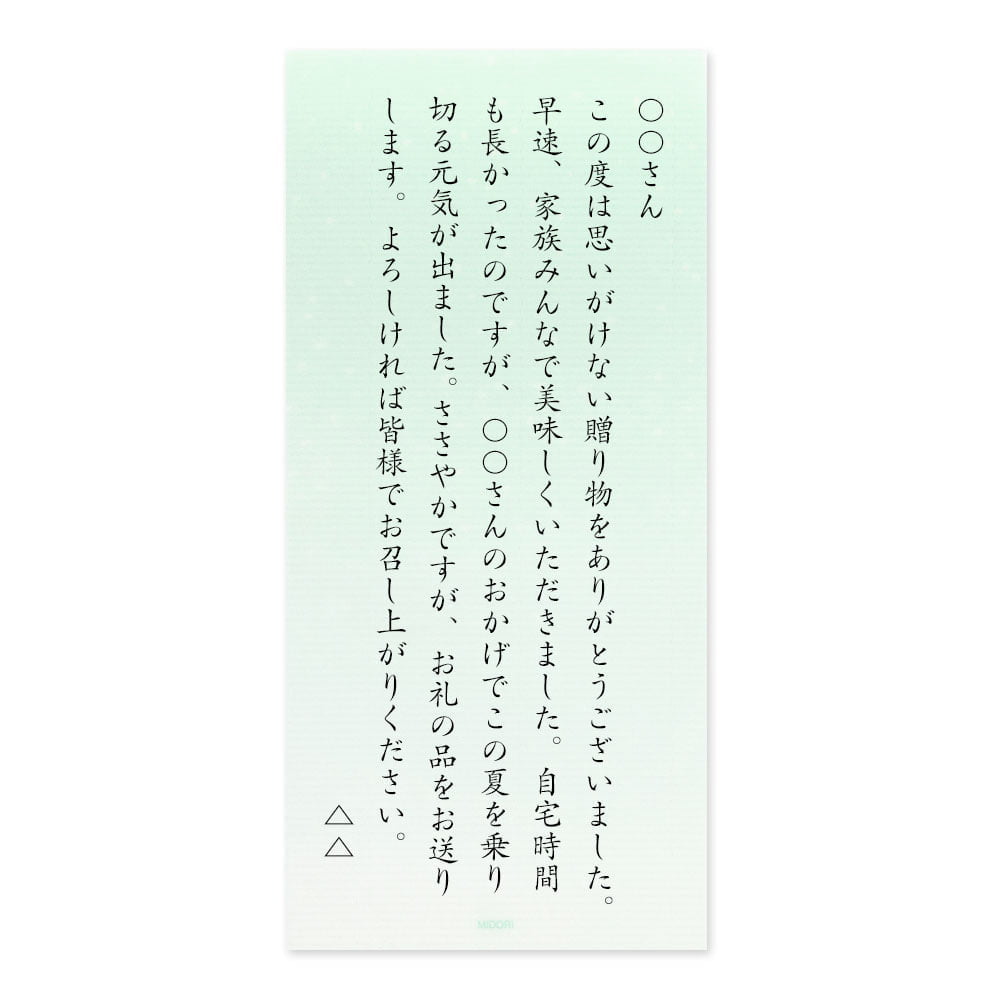 ○○さん
この度は思いがけない贈り物をありがとうございました。
早速、家族みんなで美味しくいただきました。自宅時間
も長かったのですが、○○さんのおかげでこの夏を乗り
切る元気が出ました。ささやかですが、お礼の品をお送り
します。よろしければ皆様でお召し上がりください。
△△
MIDORI